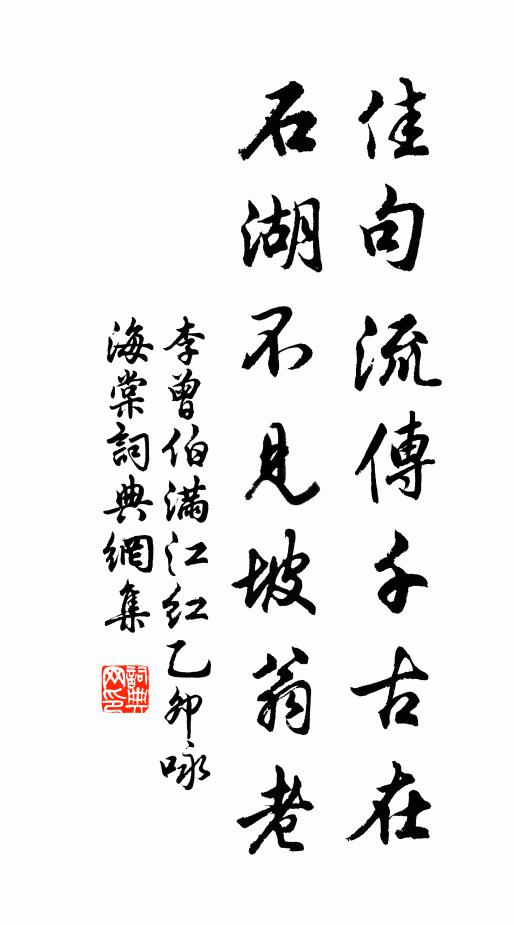 佳句流傳千古在
石湖不見坡翁老
李曾伯滿江紅乙卯咏
海棠詞典網集
詞典
网印